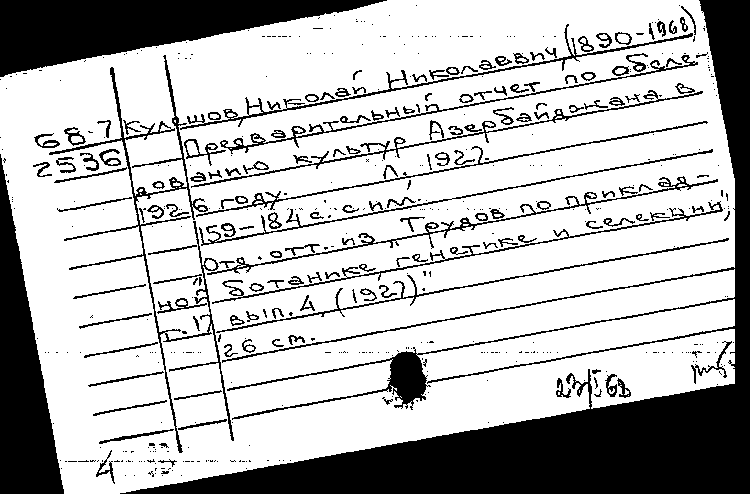 68-7 Кулешов, Николай Николаевич, (1890-1968)
2536 Предварительный отчет по обсле-
дованию культур Азербайджана в
1926 году. Л. 1927.
159-184 с. с илл.
Отд. отт. из "Трудов по приклад-
ной ботанике, генетике и селекции",
т. 17, вып. 4, (1927)."
26 см.
4